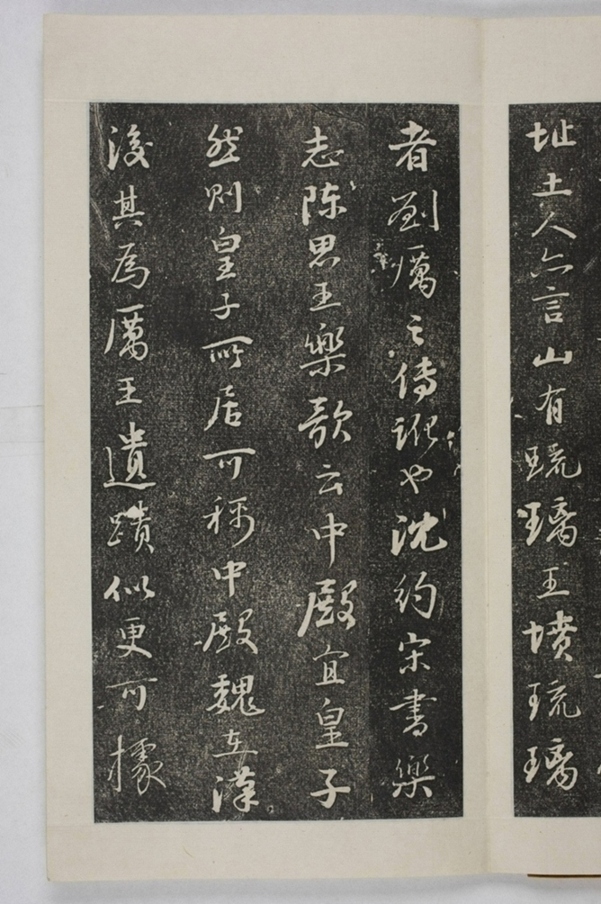 址土人亦言山有琉璃王墳琉璃
者劉厲之傳訛也沈約宋書樂
志陳思王樂歌云中殿宜皇子
然則皇子所居可稱中殿魏在漢
後其為厲王遺蹟似更可據